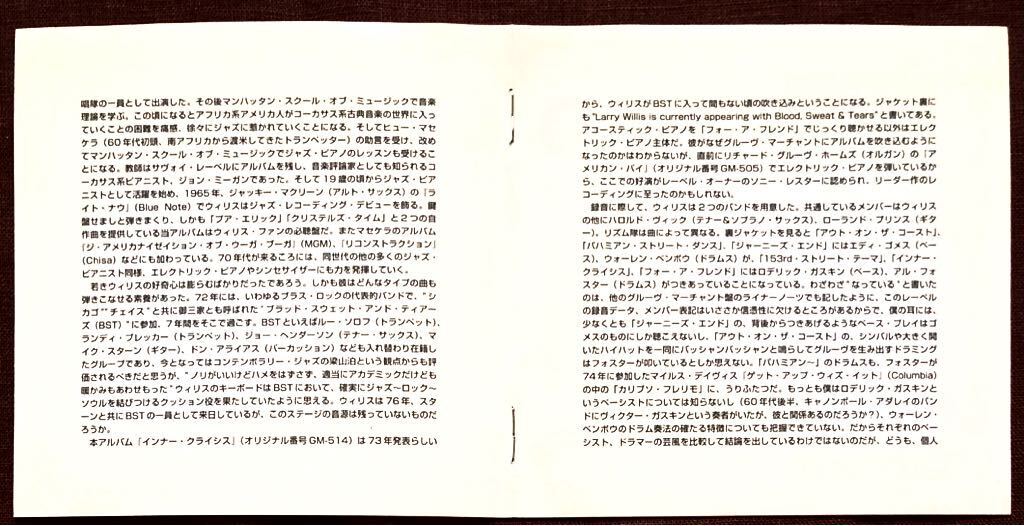 唱隊の一員として出演した。その後マンハッタン・スクール・オブ・ミュージックで音楽
理論を学ぶ。この頃になるとアフリカ系アメリカ人がコーカサス系古典音楽の世界に入っ
ていくことの困難を痛感、徐々にジャズに惹かれていくことになる。そしてヒュー・マセ
ケラ（60年代初頭、南アフリカから渡米してきたトランペッター）の助言を受け、改め
てマンハッタン・スクール・オブ・ミュージックでジャズ・ピアノのレッスンも受けるこ
とになる。教師はサヴォイ・レーベルにアルバムを残し、音楽評論家としても知られるコ
ーカサス系ピアニスト、ジョン・ミーガンであった。そして19歳の頃からジャズ・ピア
ニストとして活躍を始め、1965年、ジャッキー・マクリーン（アルト・サックス）の『ラ
イト・ナウ』（Blue Note）でウィリスはジャズ・レコーディング・デビューを飾る。鍵
盤せましと弾きまくり、しかも「プア・エリック」「クリステルズ・タイム」と2つの自
作曲を提供している当アルバムはウィリス・ファンの必聴盤だ。またマセケラのアルバム
『ジ・アメリカナイゼイション・オブ・ウーガ・ブーガ』（MGM）、『リコンストラクション』
（Chisa）などにも加わっている。70年代が来るころには、同世代の他の多くのジャズ・
ピアニスト同様、エレクトリック・ピアノやシンセサイザーにも力を発揮していく。
若きウィリスの好奇心は膨らむばかりだったであろう。しかも彼はどんなタイプの曲も
弾きこなせる素養があった。72年には、いわゆるブラス・ロックの代表的バンドで、"シ
カゴ""チェイス"と共に御三家とも呼ばれた"ブラッド・スウェット・アンド・ティアー
ズ（BST）"に参加、7年間をそこで過ごす。BSTといえばルー・ソロフ（トランペット）、
ランディ・ブレッカー（トランペット）、ジョー・ヘンダーソン（テナー・サックス）、マ
イク・スターン（ギター）、ドン・アライアス（パーカッション）なども入れ替わり在籍し
たグループであり、今となってはコンテンポラリー・ジャズの梁山泊という観点からも評
価されるべきだと思うが、"ノリがいいけどハメをはずさず、適当にアカデミックだけども
暖かみもあわせもった"ウィリスのキーボードはBSTにおいて、確実にジャズ～ロック～
ソウルを結びつけるクッション役を果たしていたように思える。ウィリスは76年、スタ
ーンと共にBSTの一員として来日しているが、このステージの音源は残っていないものだ
ろうか。
本アルバム『インナー・クライシス』（オリジナル番号GM-514）は73年発表らしい
から、ウィリスがBSTに入って間もない頃の吹き込みということになる。ジャケット裏に
も"Larry Willis is currently appearing with Blood, Sweat & Tears"と書いてある。
アコースティック・ピアノを「フォー・ア・フレンド」でじっくり聴かせる以外はエレク
トリック・ピアノ主体だ。彼がなぜグルーヴ・マーチャントにアルバムを吹き込むように
なったのかはわからないが、直前にリチャード・グルーヴ・ホームズ（オルガン）の『ア
メリカン・パイ』（オリジナル番号GM-505）でエレクトリック・ピアノを弾いているか
ら、ここでの好演がレーベル・オーナーのソニー・レスターに認められ、リーダー作のレ
コーディングに至ったのかもしれない。
録音に際して、ウィリスは2つのバンドを用意した。共通しているメンバーはウィリス
の他にハロルド・ヴィック（テナー＆ソプラノ・サックス）、ローランド・プリンス（ギタ
ー）。リズム隊は曲によって異なる。裏ジャケットを見ると「アウト・オン・ザ・コースト」、
「バハミアン・ストリート・ダンス」、「ジャーニーズ・エンド」にはエディ・ゴメス（ベー
ス）、ウォーレン・ベンボウ（ドラムス）が、「153rd・ストリート・テーマ」、「インナー・
クライシス」、「フォー・ア・フレンド」にはロデリック・ガスキン（ベース）、アル・フォ
スター（ドラムス）がつきあっていることになっている。わざわざ"なっている"と書いた
のは、他のグルーヴ・マーチャント盤のライナーノーツでも記したように、このレーベル
の録音データ、メンバー表記はいささか信憑性に欠けるところがあるからで、僕の耳には、
少なくとも「ジャーニーズ・エンド」の、背後からつきあげるようなベース・プレイはゴ
メスのものにしか聴こえないし、「アウト・オン・ザ・コースト」の、シンバルや大きく開
いたハイハットを一同にバッシャンバッシャンと鳴らしてグルーヴを生み出すドラミング
はフォスターが叩いているとしか思えない。「バハミアン～」のドラムスも、フォスターが
74年に参加したマイルス・デイヴィス『ゲット・アップ・ウィズ・イット』（Columbia）
の中の「カリプソ・フレリモ」に、うりふたつだ。もっとも僕はロデリック・ガスキンと
いうベーシストについては知らないし（60年代後半、キャノンボール・アダレイのバン
ドにヴィクター・ガスキンという奏者がいたが、彼と関係あるのだろうか？）、ウォーレン・
ベンボウのドラム奏法の確たる特徴についても把握できていない。だからそれぞれのベー
シスト、ドラマーの芸風を比較して結論を出しているわけではないのだが、どうも、個人